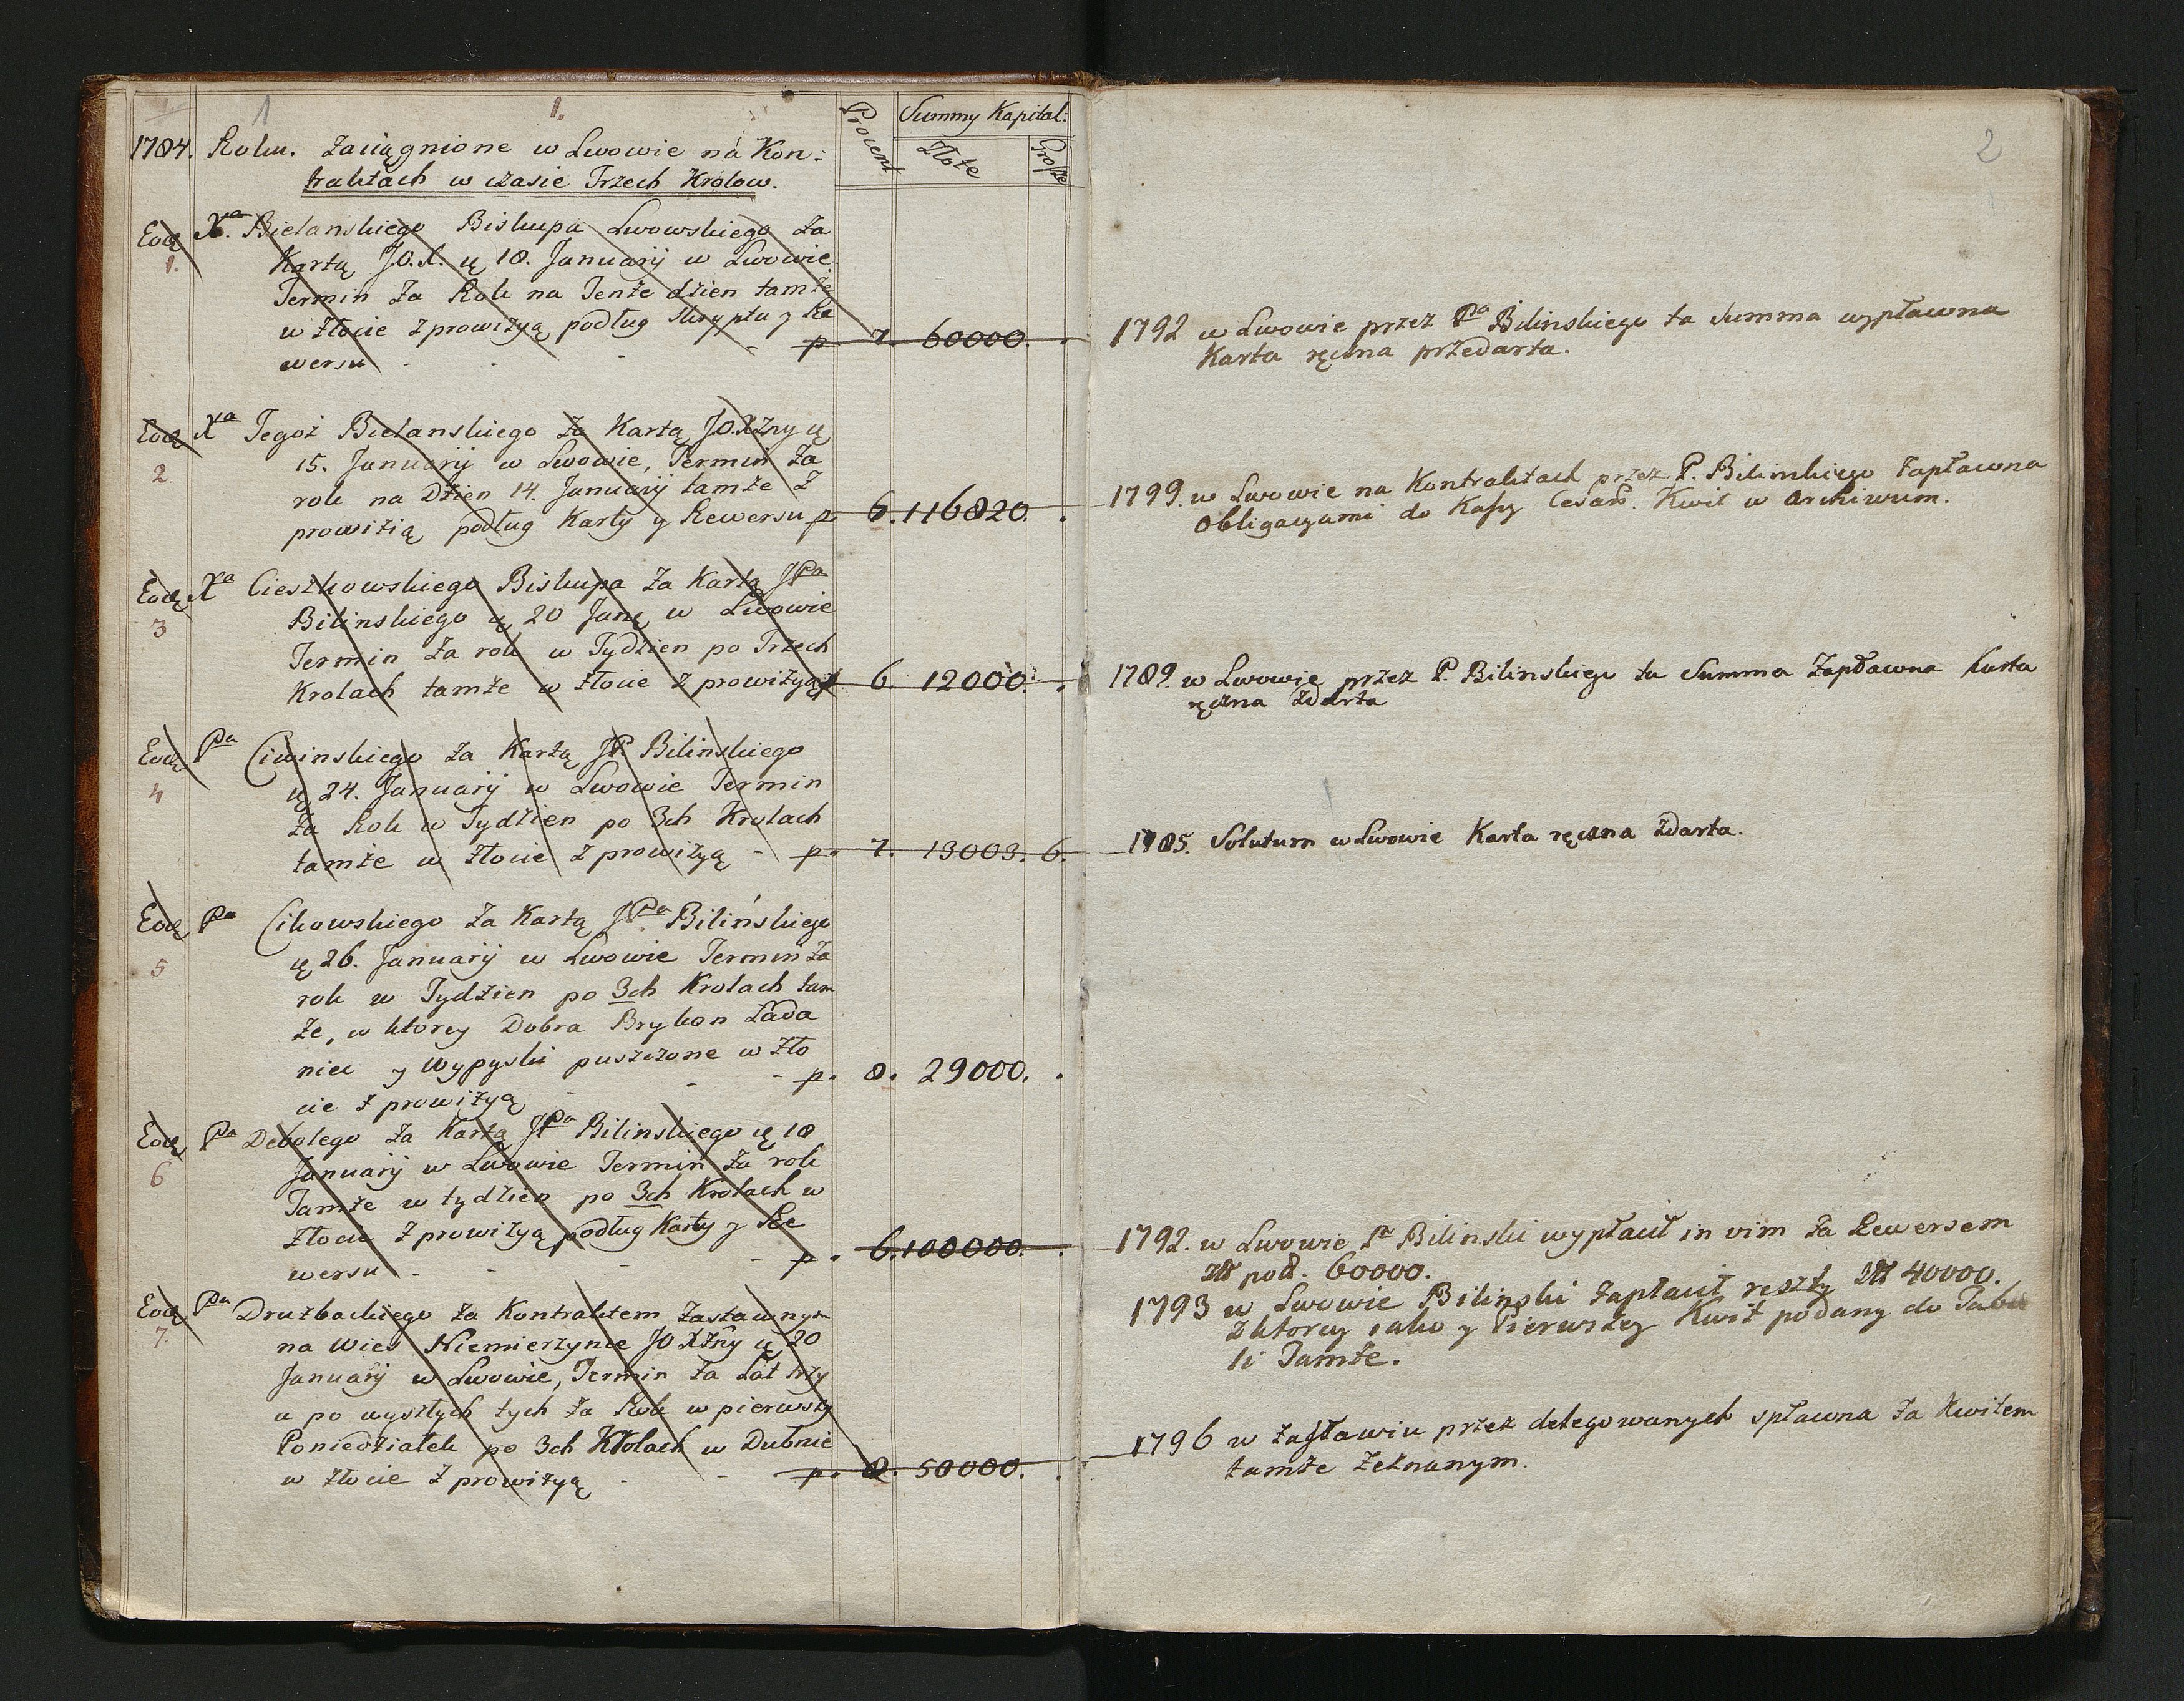 1
1.
Procent
Summy Kapital:
Złote
Grosze
1784. Roku. Zaciągnione w Lwowie na Kon:
traktach w czasie Trzech Krolow.
Eod 1. Xa. Bielanskiego Biskupa Lwowskiego za
Kartą JO.X. d 18. Januarij w Lwowie.
Termin za Rok na Tenże dzien tamże
w złocie z prowizyą podług Skryptu y Re
wersu - - - p. 7. 60000. .
Eod 2. Xa Tegoż Bielanskiego za Kartą JO.XZny d
15. Januarij w Lwowie, Termin za
rok na Dzien 14. Januarij tamże z
prowizią podług Karty y Rewersu p. 6. 116820. .
Eod 3 Xa Cieszkowskiego Biskupa za Kartą JPa
Bilinskiego d 20 Jan. w Lwowie
Termin za rok w Tydzien po Trzech
Krolach tamże w złocie z prowizyą p 6. 12000. .
Eod 4 Pa Ciwinskiego za Kartą JP. Bilinskiego
d 24. Januarij w Lwowie Termin
za Rok w Tydzien po 3ch Krolach
tamże w złocie z prowizyą - p. 7. 13003. 6.
Eod 5 Pa Cikowskiego za Kartą JPa Bilińskiego
d 26. Januarij w Lwowie Termin za
rok w Tydzien po 3ch Krolach tam
że, w ktorey Dobra Brykon Lada
niec y Wypyski puszczone w zło
cie z prowizyą - - p. 8. 29000. .
Eod 6 Pa Debolego za Kartą JPa Bilinskiego d 18
Januarij w Lwowie Termin za rok
Tamże w tydzien po 3ch Krolach w
Złocie z prowizyą podług Karty y Re
wersu - - - - p. 6. 100000. .
Eod 7. Pa Druzbackiego za Kontraktem Zastawnym
na Wieś Niemierzynce JO XZny d 20
Januarij w Lwowie, Termin za Lat trzy
a po wyszłych tych za Rok w pierwszy
Poniedziałek po 3ch Krolach w Dubnie
w złocie z prowizyą - - p. 8. 50000. .
2
1792 w Lwowie przez Pa Bilinskiego ta Summa wypłacona
Karta ręczna przedarta.
1799. w Lwowie na Kontraktach przez P. Bilinskiego zapłacona
Obligacyami do Kassy Cesars. Kwit w Archiwum.
1789. w Lwowie przez P. Bilinskiego ta Summa Zapłacona Karta
ręczna zdarta
1785. Solutum w Lwowie Karta ręczna zdarta.
1792. w Lwowie Pa Bilinski wypłacił in vim za Rewersem
zł pol. 60000.
1793 w Lwowie Bilinski zapłacił resztę zł 40000.
z ktorey iako y Pierwszey Kwit podany do Tabu
li Tamże.
1796 w Zasławiu przez delegowanych spłacona za Kwitem
tamże Zeznanym.